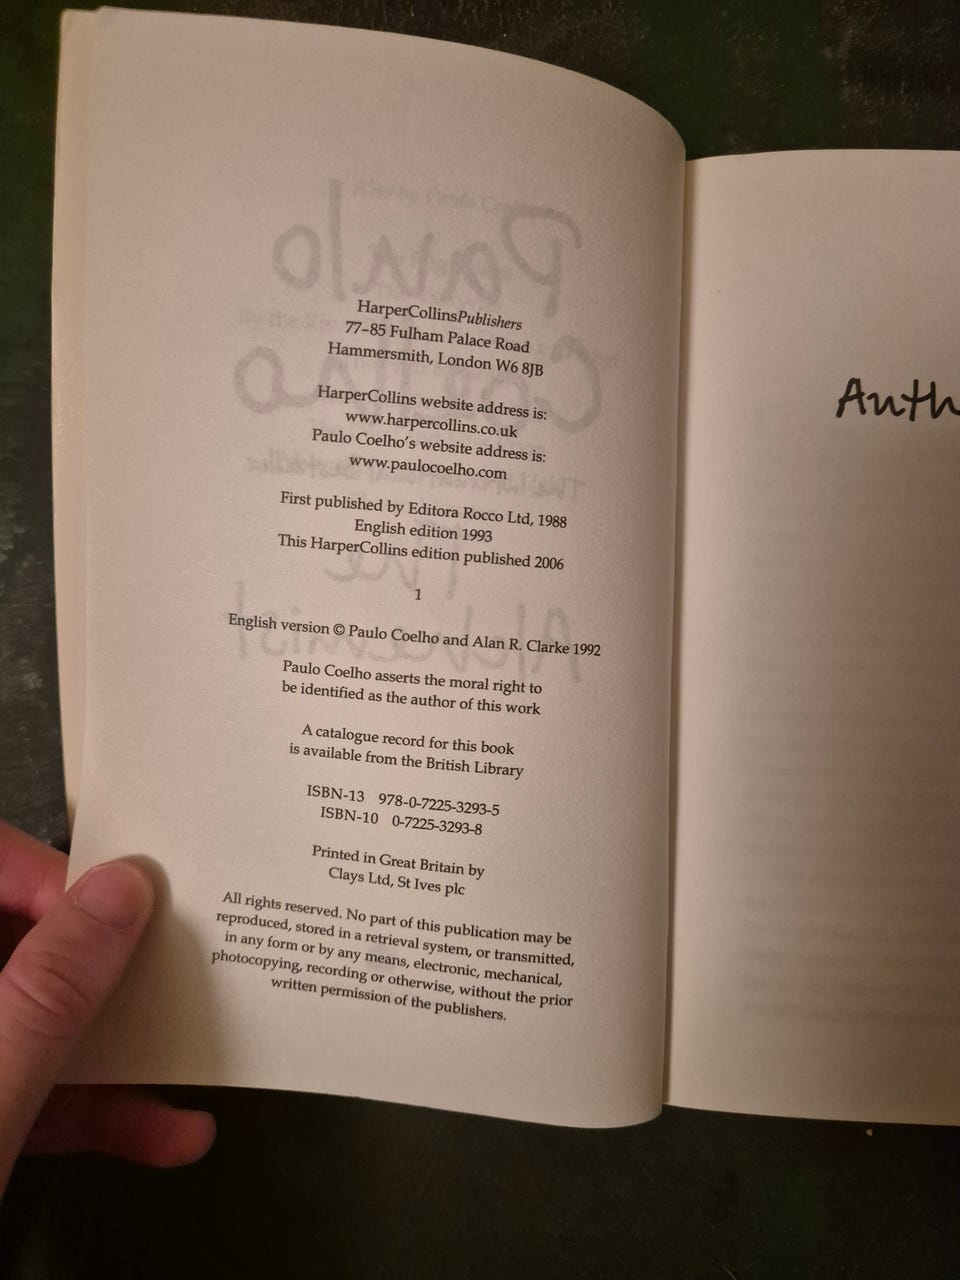 HarperCollinsPublishers
77–85 Fulham Palace Road
Hammersmith, London W6 8JB
HarperCollins website address is:
www.harpercollins.co.uk
Paulo Coelho's website address is:
www.paulocoelho.com
First published by Editora Rocco Ltd, 1988
English edition 1993
This HarperCollins edition published 2006
1
English version © Paulo Coelho and Alan R. Clarke 1992
Paulo Coelho asserts the moral right to
be identified as the author of this work
A catalogue record for this book
is available from the British Library
ISBN-13 978-0-7225-3293-5
ISBN-10 0-7225-3293-8
Printed in Great Britain by
Clays Ltd, St Ives plc
All rights reserved. No part of this publication may be
reproduced, stored in a retrieval system, or transmitted,
in any form or by any means, electronic, mechanical,
photocopying, recording or otherwise, without the prior
written permission of the publishers.
Auth